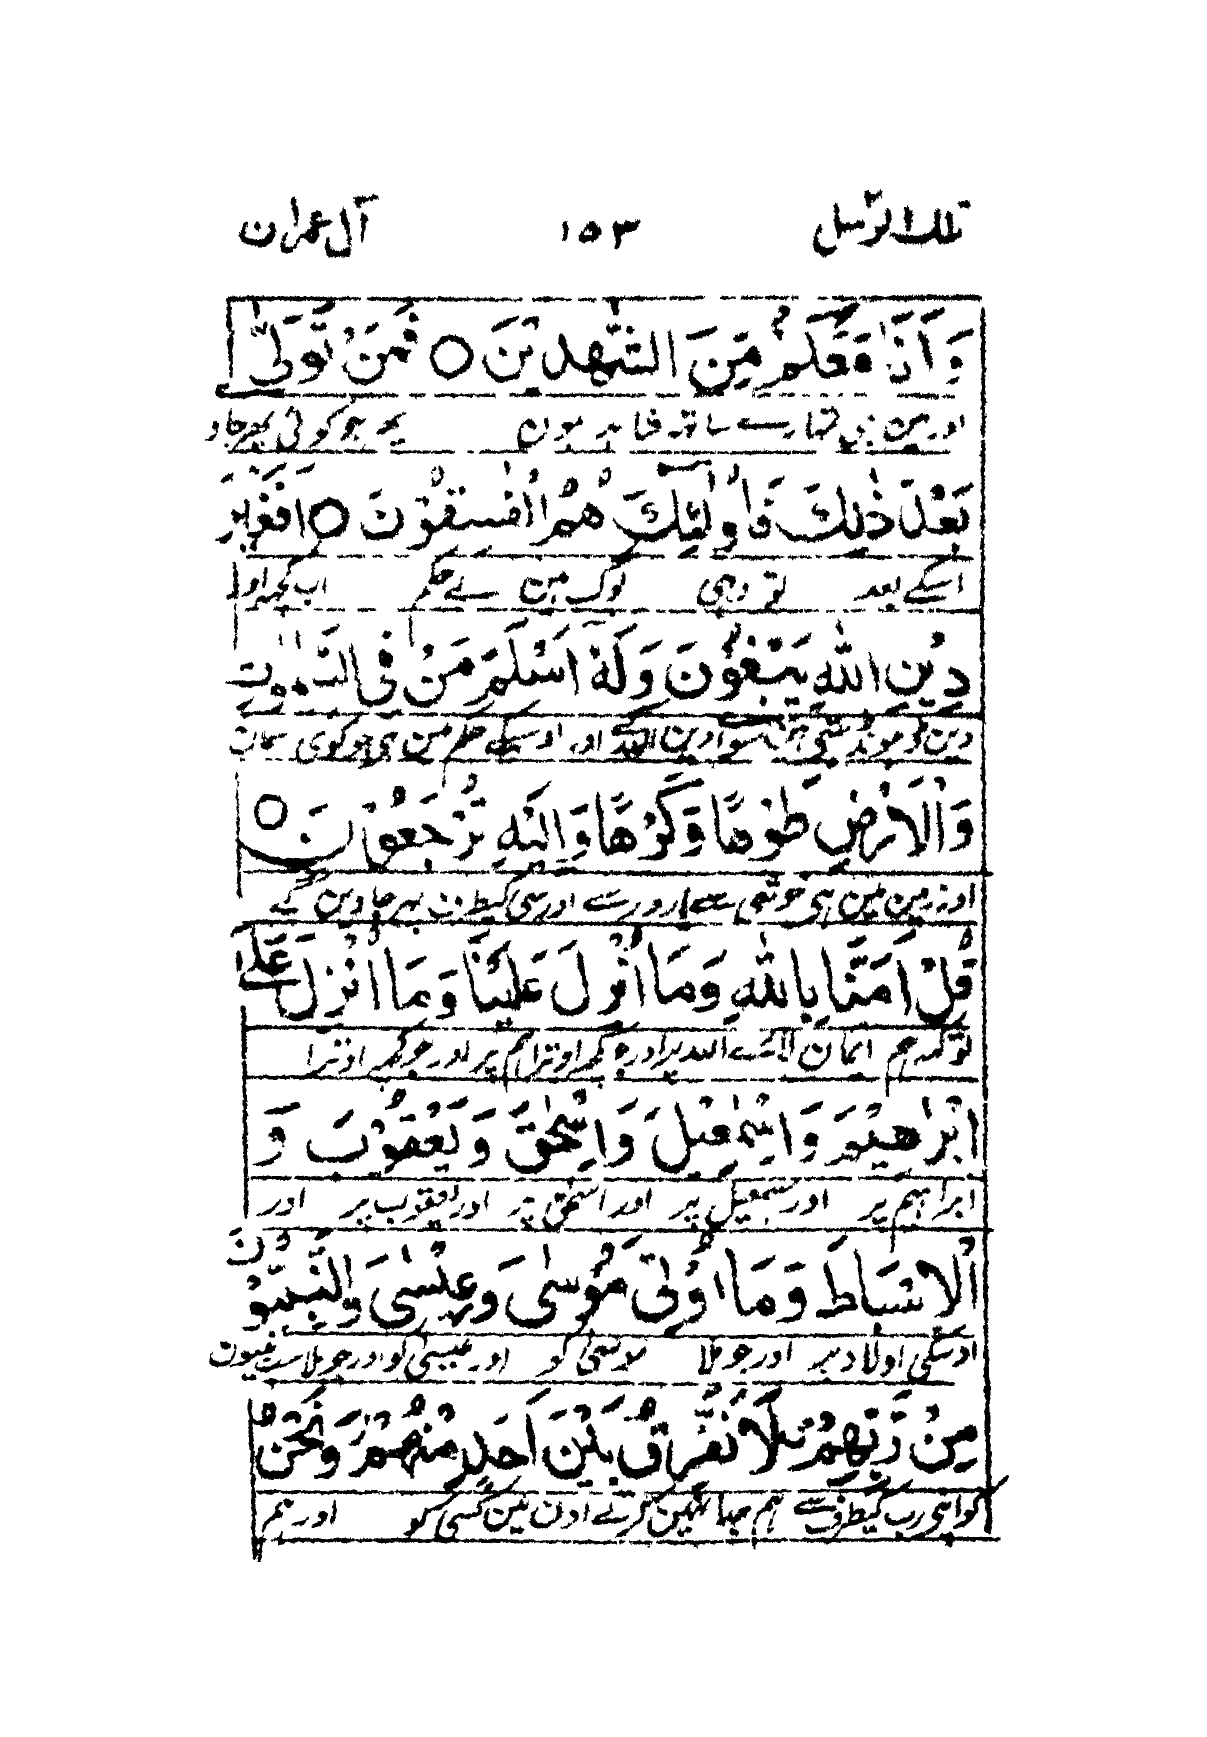 تلك الرسل ١٥٣ آل عمران
وَاَنَا مَعَكُمْ مِّنَ الشّٰهِدِيْنَ ○ فَمَنْ تَوَلّٰى
اور مین بھی تمہارے ساتھ شاہد ہون پھر جو کوئی پھر جاو
بَعْدَ ذٰلِكَ فَاُولٰٓئِكَ هُمُ الْفٰسِقُوْنَ ○ اَفَغَيْرَ
اسکے بعد تو وہی لوگ ہین بے حکم اب کچھ اور
دِيْنِ اللّٰهِ يَبْغُوْنَ وَلَهٗٓ اَسْلَمَ مَنْ فِى السَّمٰوٰتِ
دین ڈھونڈھتے ہین سوا دین اللہ کے اور اوسیکے حکم مین ہی جو کوئی آسمان
وَالْاَرْضِ طَوْعًا وَّكَرْهًا وَّاِلَيْهِ تُرْجَعُوْنَ ○
اور زمین مین ہی خوشی سے اور زور سے اور اسی کیطرف پھر جاوین گے
قُلْ اٰمَنَّا بِاللّٰهِ وَمَآ اُنْزِلَ عَلَيْنَا وَمَآ اُنْزِلَ عَلٰٓى
تو کہہ ہم ایمان لائے اللہ پر اور جو کچھ اوترا ہم پر اور جو کچھ اوترا
اِبْرٰهِيْمَ وَاِسْمٰعِيْلَ وَاِسْحٰقَ وَيَعْقُوْبَ وَ
ابراہیم پر اور اسمعیل پر اور اسحق پر اور یعقوب پر اور
الْاَسْبَاطِ وَمَآ اُوْتِىَ مُوْسٰى وَعِيْسٰى وَالنَّبِيُّوْنَ
اوسکی اولاد پر اور جو ملا موسی کو اور عیسی کو اور جو ملا سب نبیون
مِنْ رَّبِّهِمْ لَا نُفَرِّقُ بَيْنَ اَحَدٍ مِّنْهُمْ وَنَحْنُ
کو اپنی رب کیطرف سے ہم جدا نہین کرتے اون مین کسی کو اور ہم